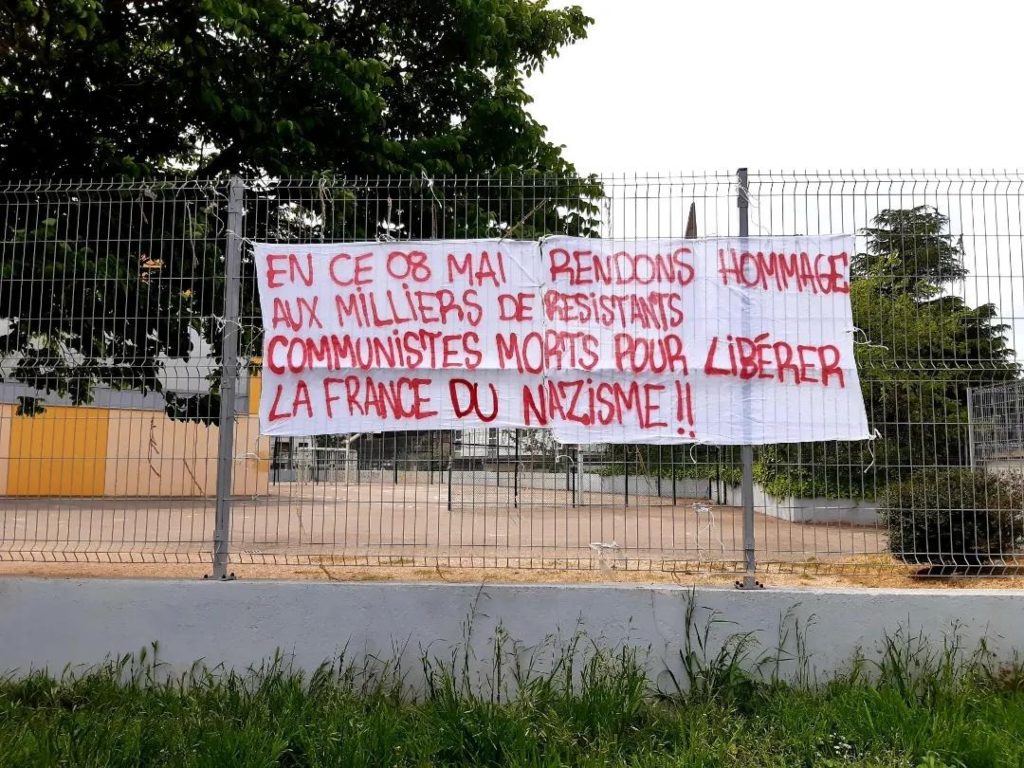 EN CE 08 MAI RENDONS HOMMAGE
AUX MILLIERS DE RESISTANTS
COMMUNISTES MORTS POUR LIBÉRER
LA FRANCE DU NAZISME !!